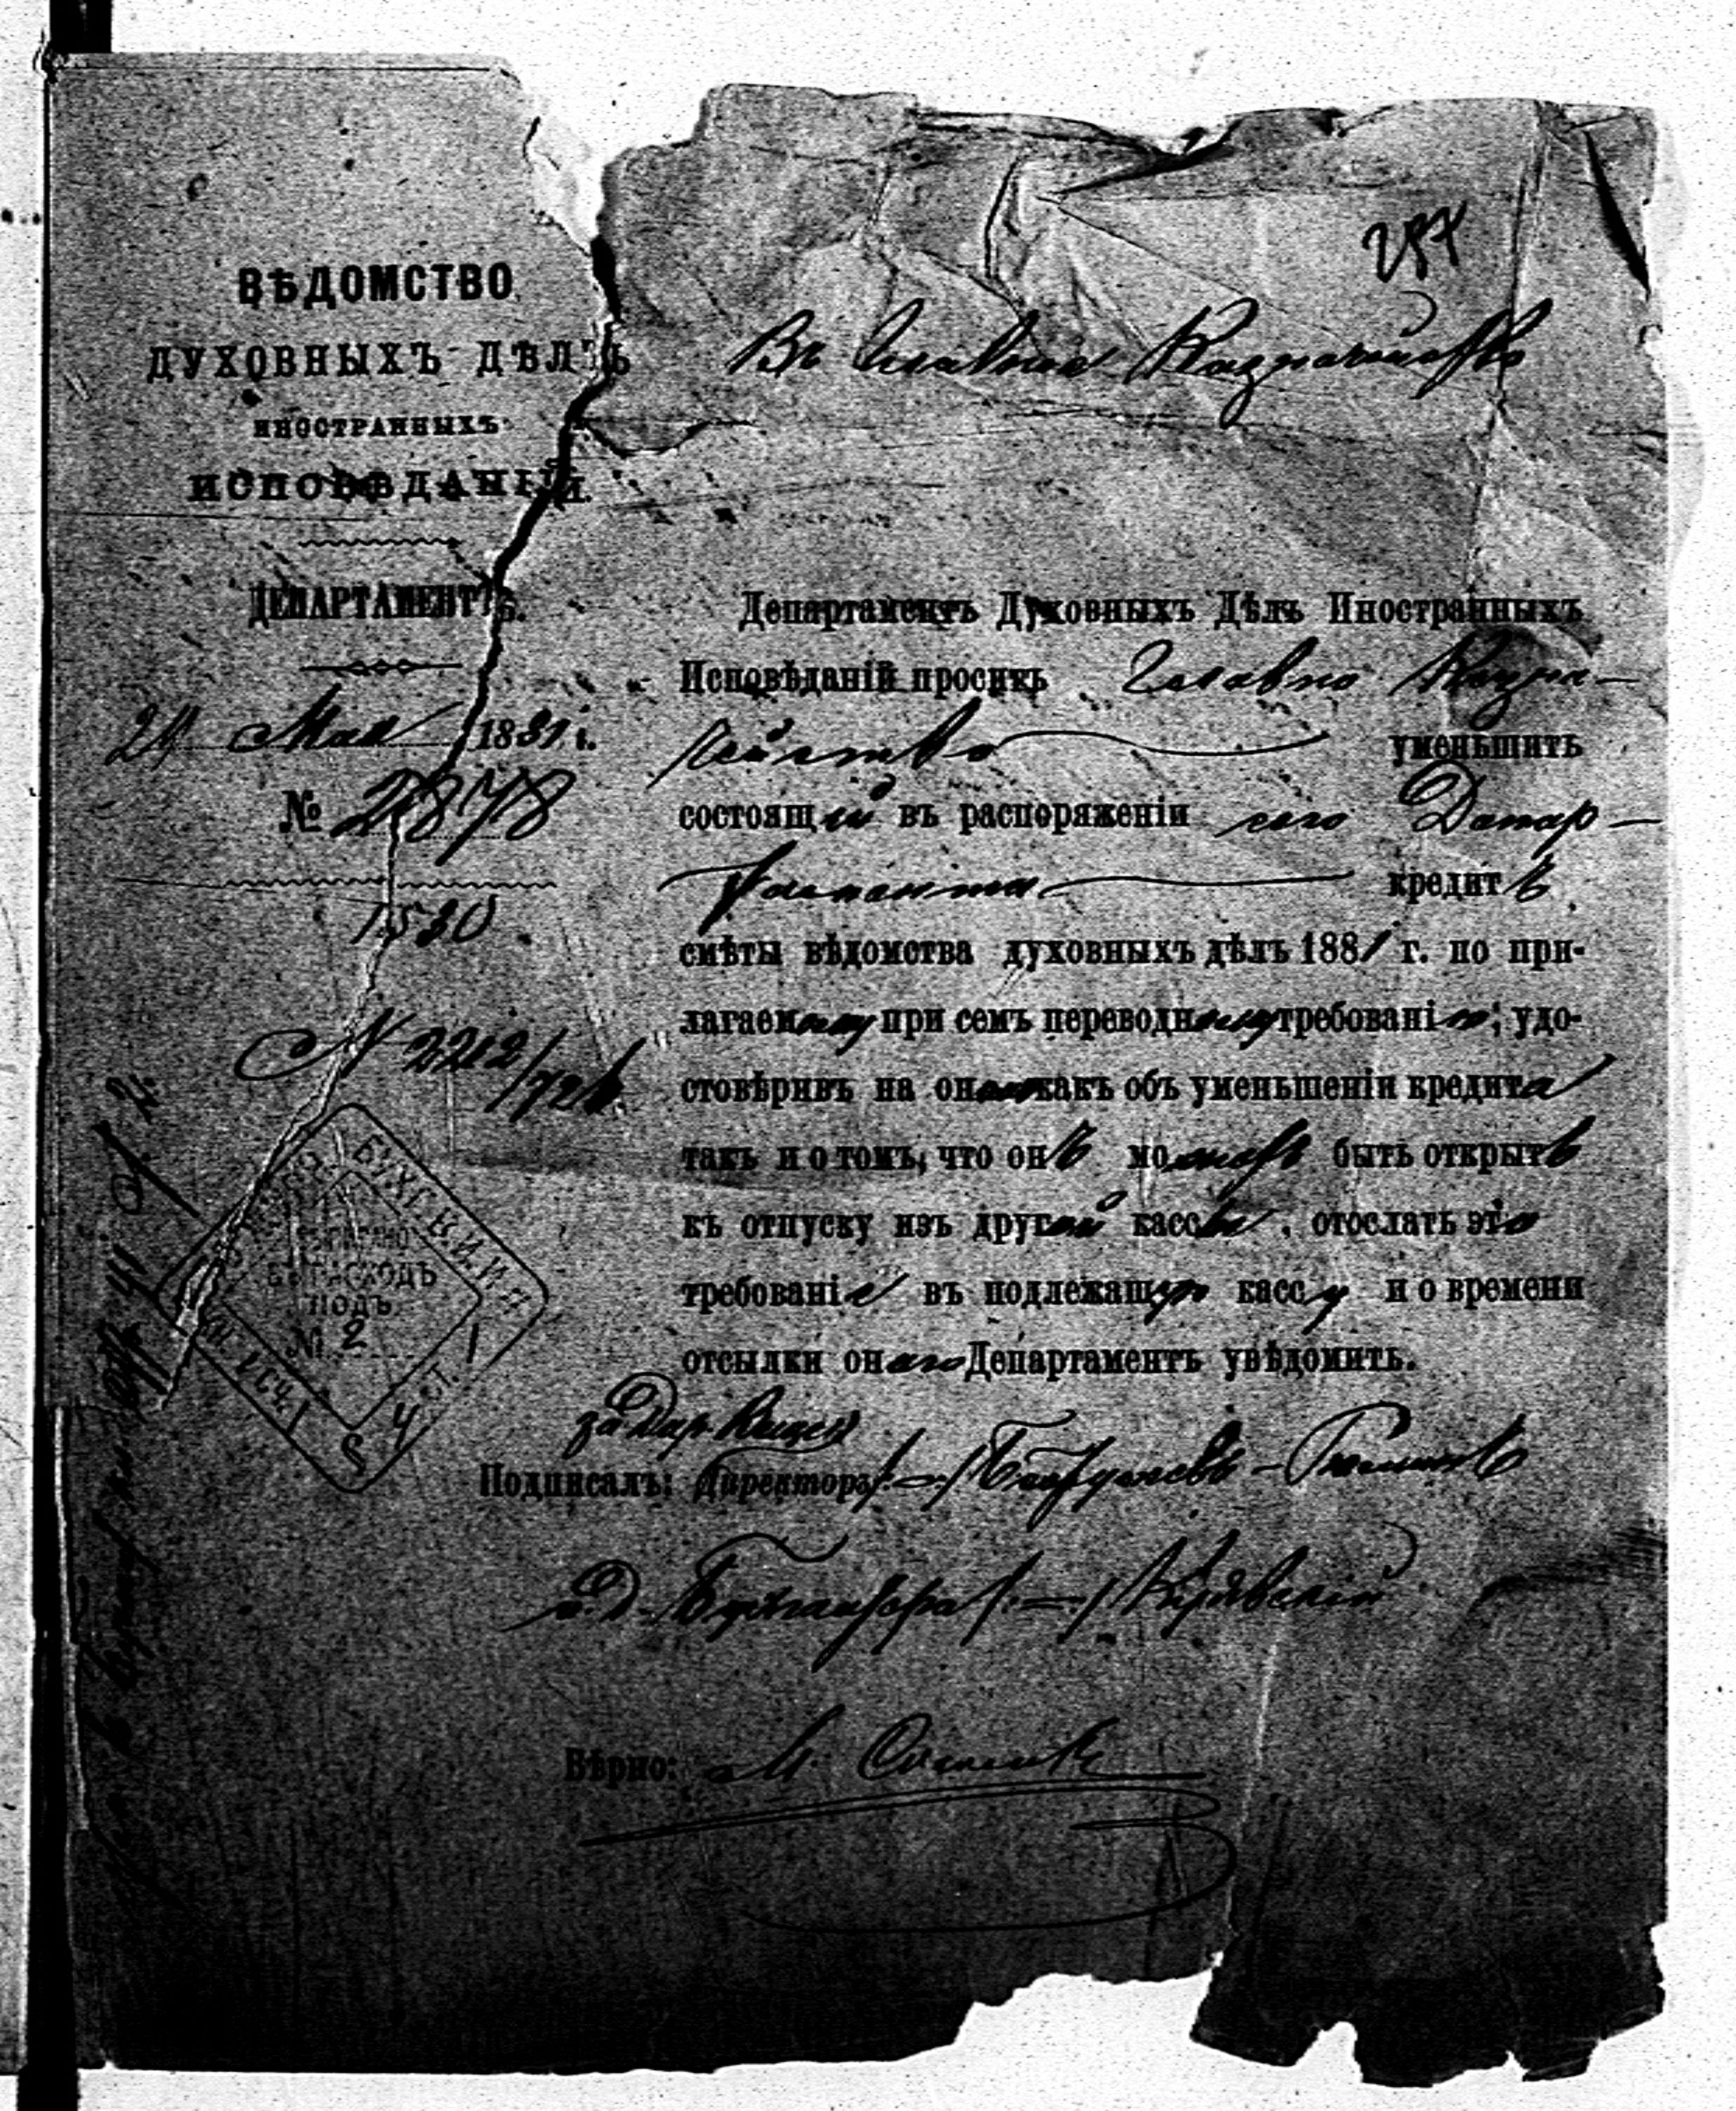 ВѢДОМСТВО
ДУХОВНЫХЪ ДѢЛЪ
ИНОСТРАННЫХЪ
ИСПОВѢДАНІЙ.
ДЕПАРТАМЕНТЪ.
Мая 1881 г.
№ 2878
1530
№ 2212/721
БУХГ.
ВЪ РАСХОДЪ
ПОДЪ
№ 2
§ 4 ст. 1
287
Въ Главное Казначейство
Департаментъ Духовныхъ Дѣлъ Иностранныхъ
Исповѣданій проситъ Главное Казна-
чейство уменьшить
состоящій въ распоряженіи сего Депар-
тамента кредитъ
смѣты вѣдомства духовныхъ дѣлъ 1881 г. по при-
лагаемому при семъ переводному требованію; удо-
стовѣривъ на ономъ какъ объ уменьшеніи кредита
такъ и о томъ, что онъ можетъ быть открытъ
къ отпуску изъ другой кассы, отослать это
требованіе въ подлежащую кассу и о времени
отсылки онаго Департаментъ увѣдомить.
за Вице
Подписалъ: Директоръ
и.д. Бухгалтера
Вѣрно: